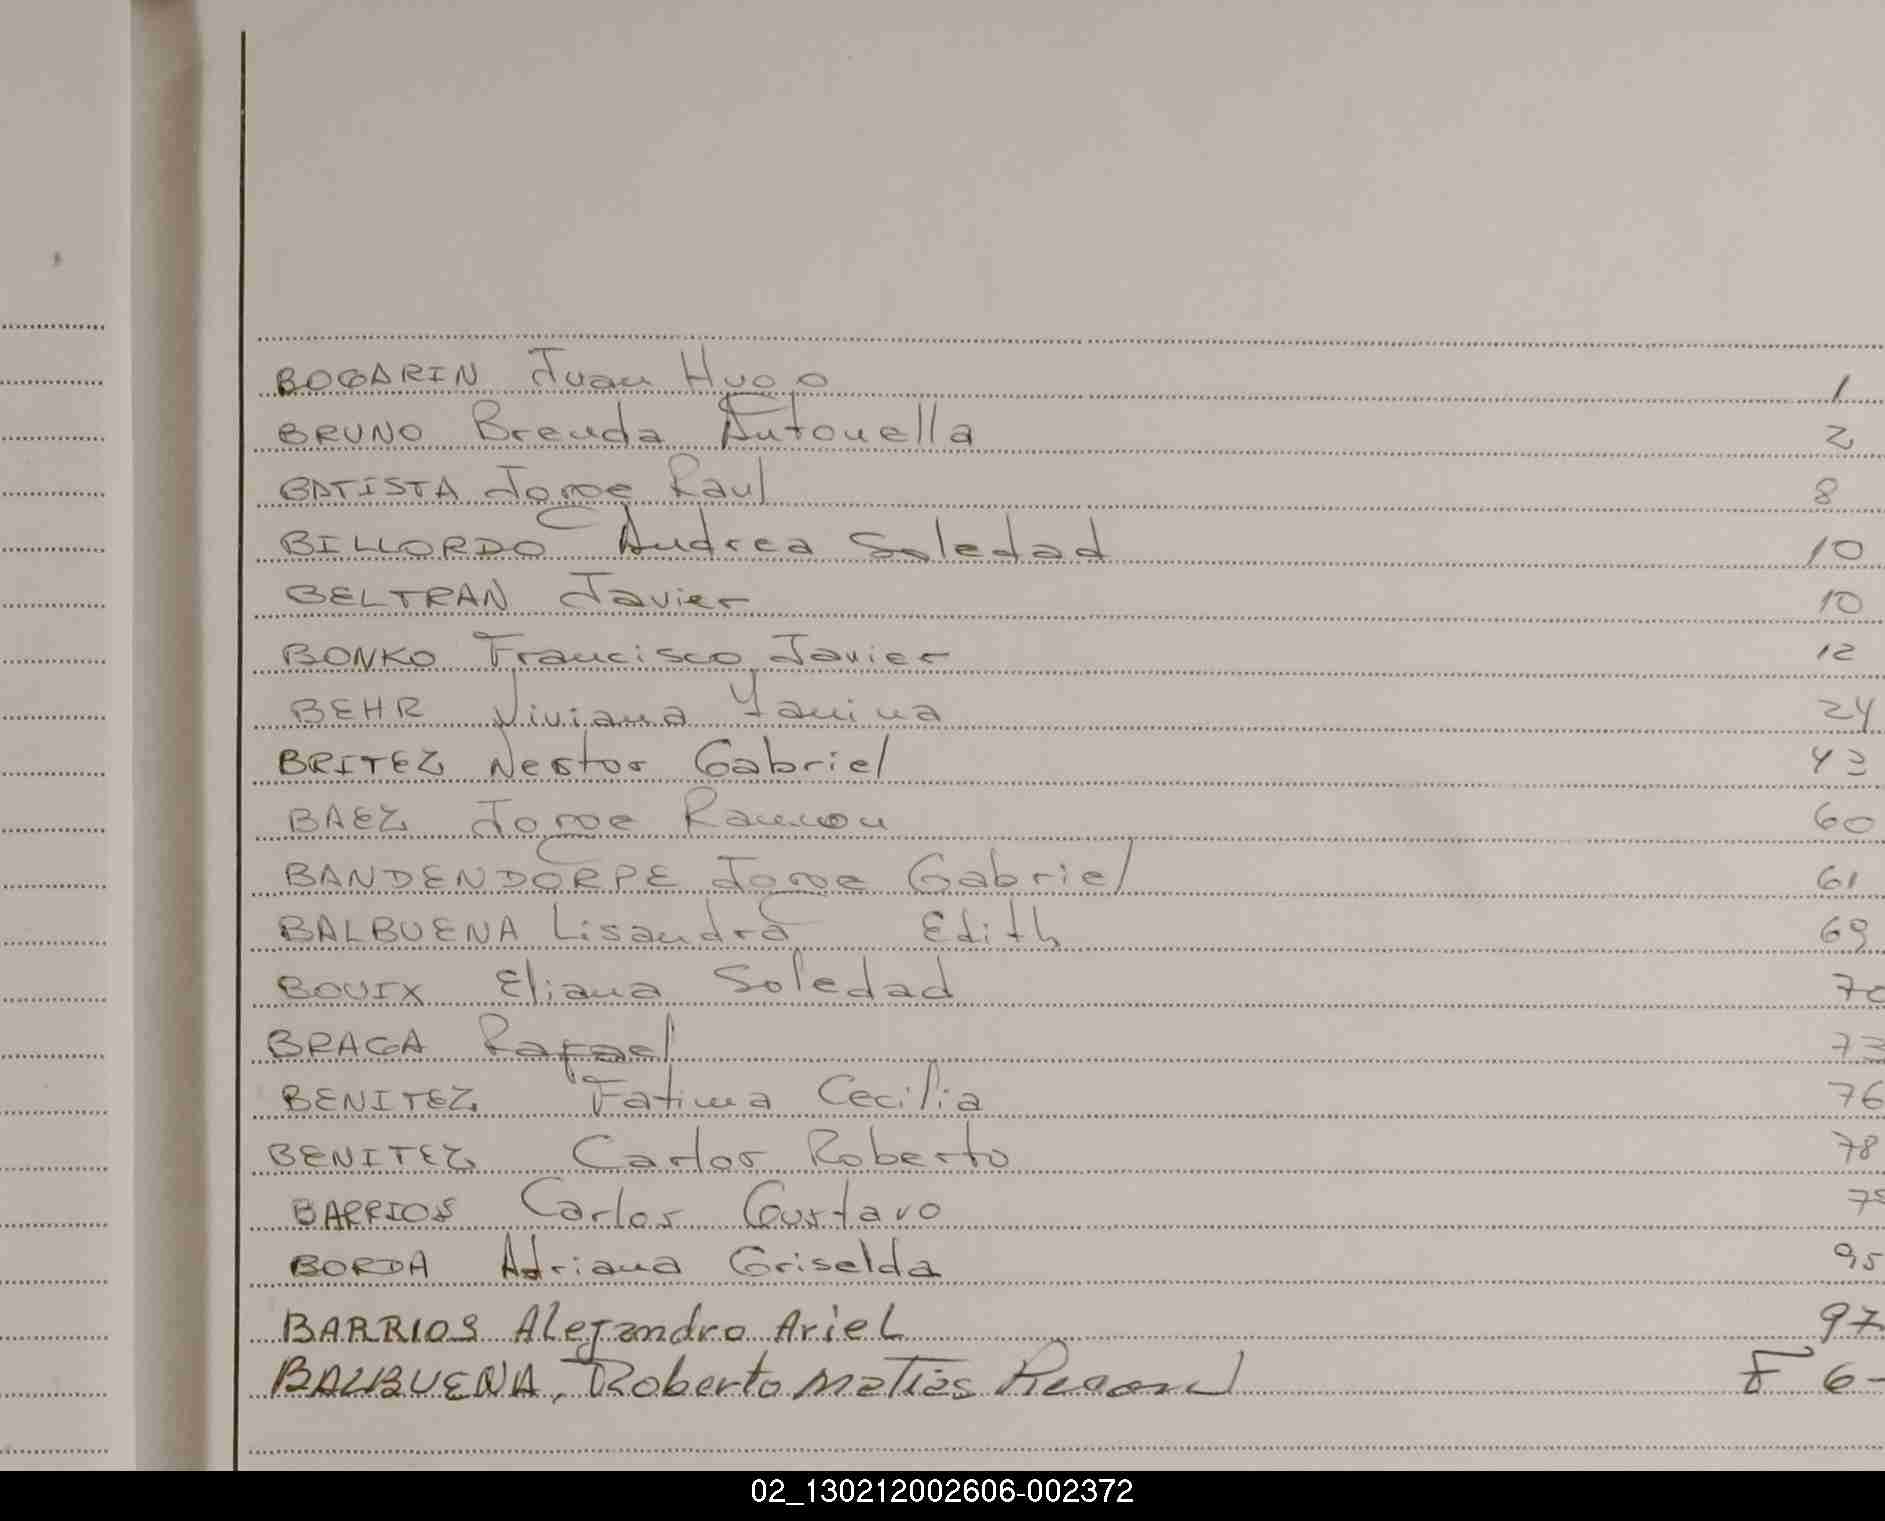 BOGARIN Juan Hugo 1
BRUNO Brenda Antonella 2
BATISTA Jorge Raul 8
BILLORDO Andrea Soledad 10
BELTRAN Javier 10
BONKO Francisco Javier 12
BEHR Viviana Yanina 24
BRITEZ Nestor Gabriel 43
BAEZ Jorge Ramon 60
BANDENDORPE Jorge Gabriel 61
BALBUENA Lisandra Edith 69
BOUIX Eliana Soledad 70
BRAGA Rafael 73
BENITEZ Fatima Cecilia 76
BENITEZ Carlos Roberto 78
BARRIOS Carlos Gustavo
BORDA Adriana Griselda 95
BARRIOS Alejandro Ariel 97
BALBUENA, Roberto Matias F 6-
02_130212002606-002372